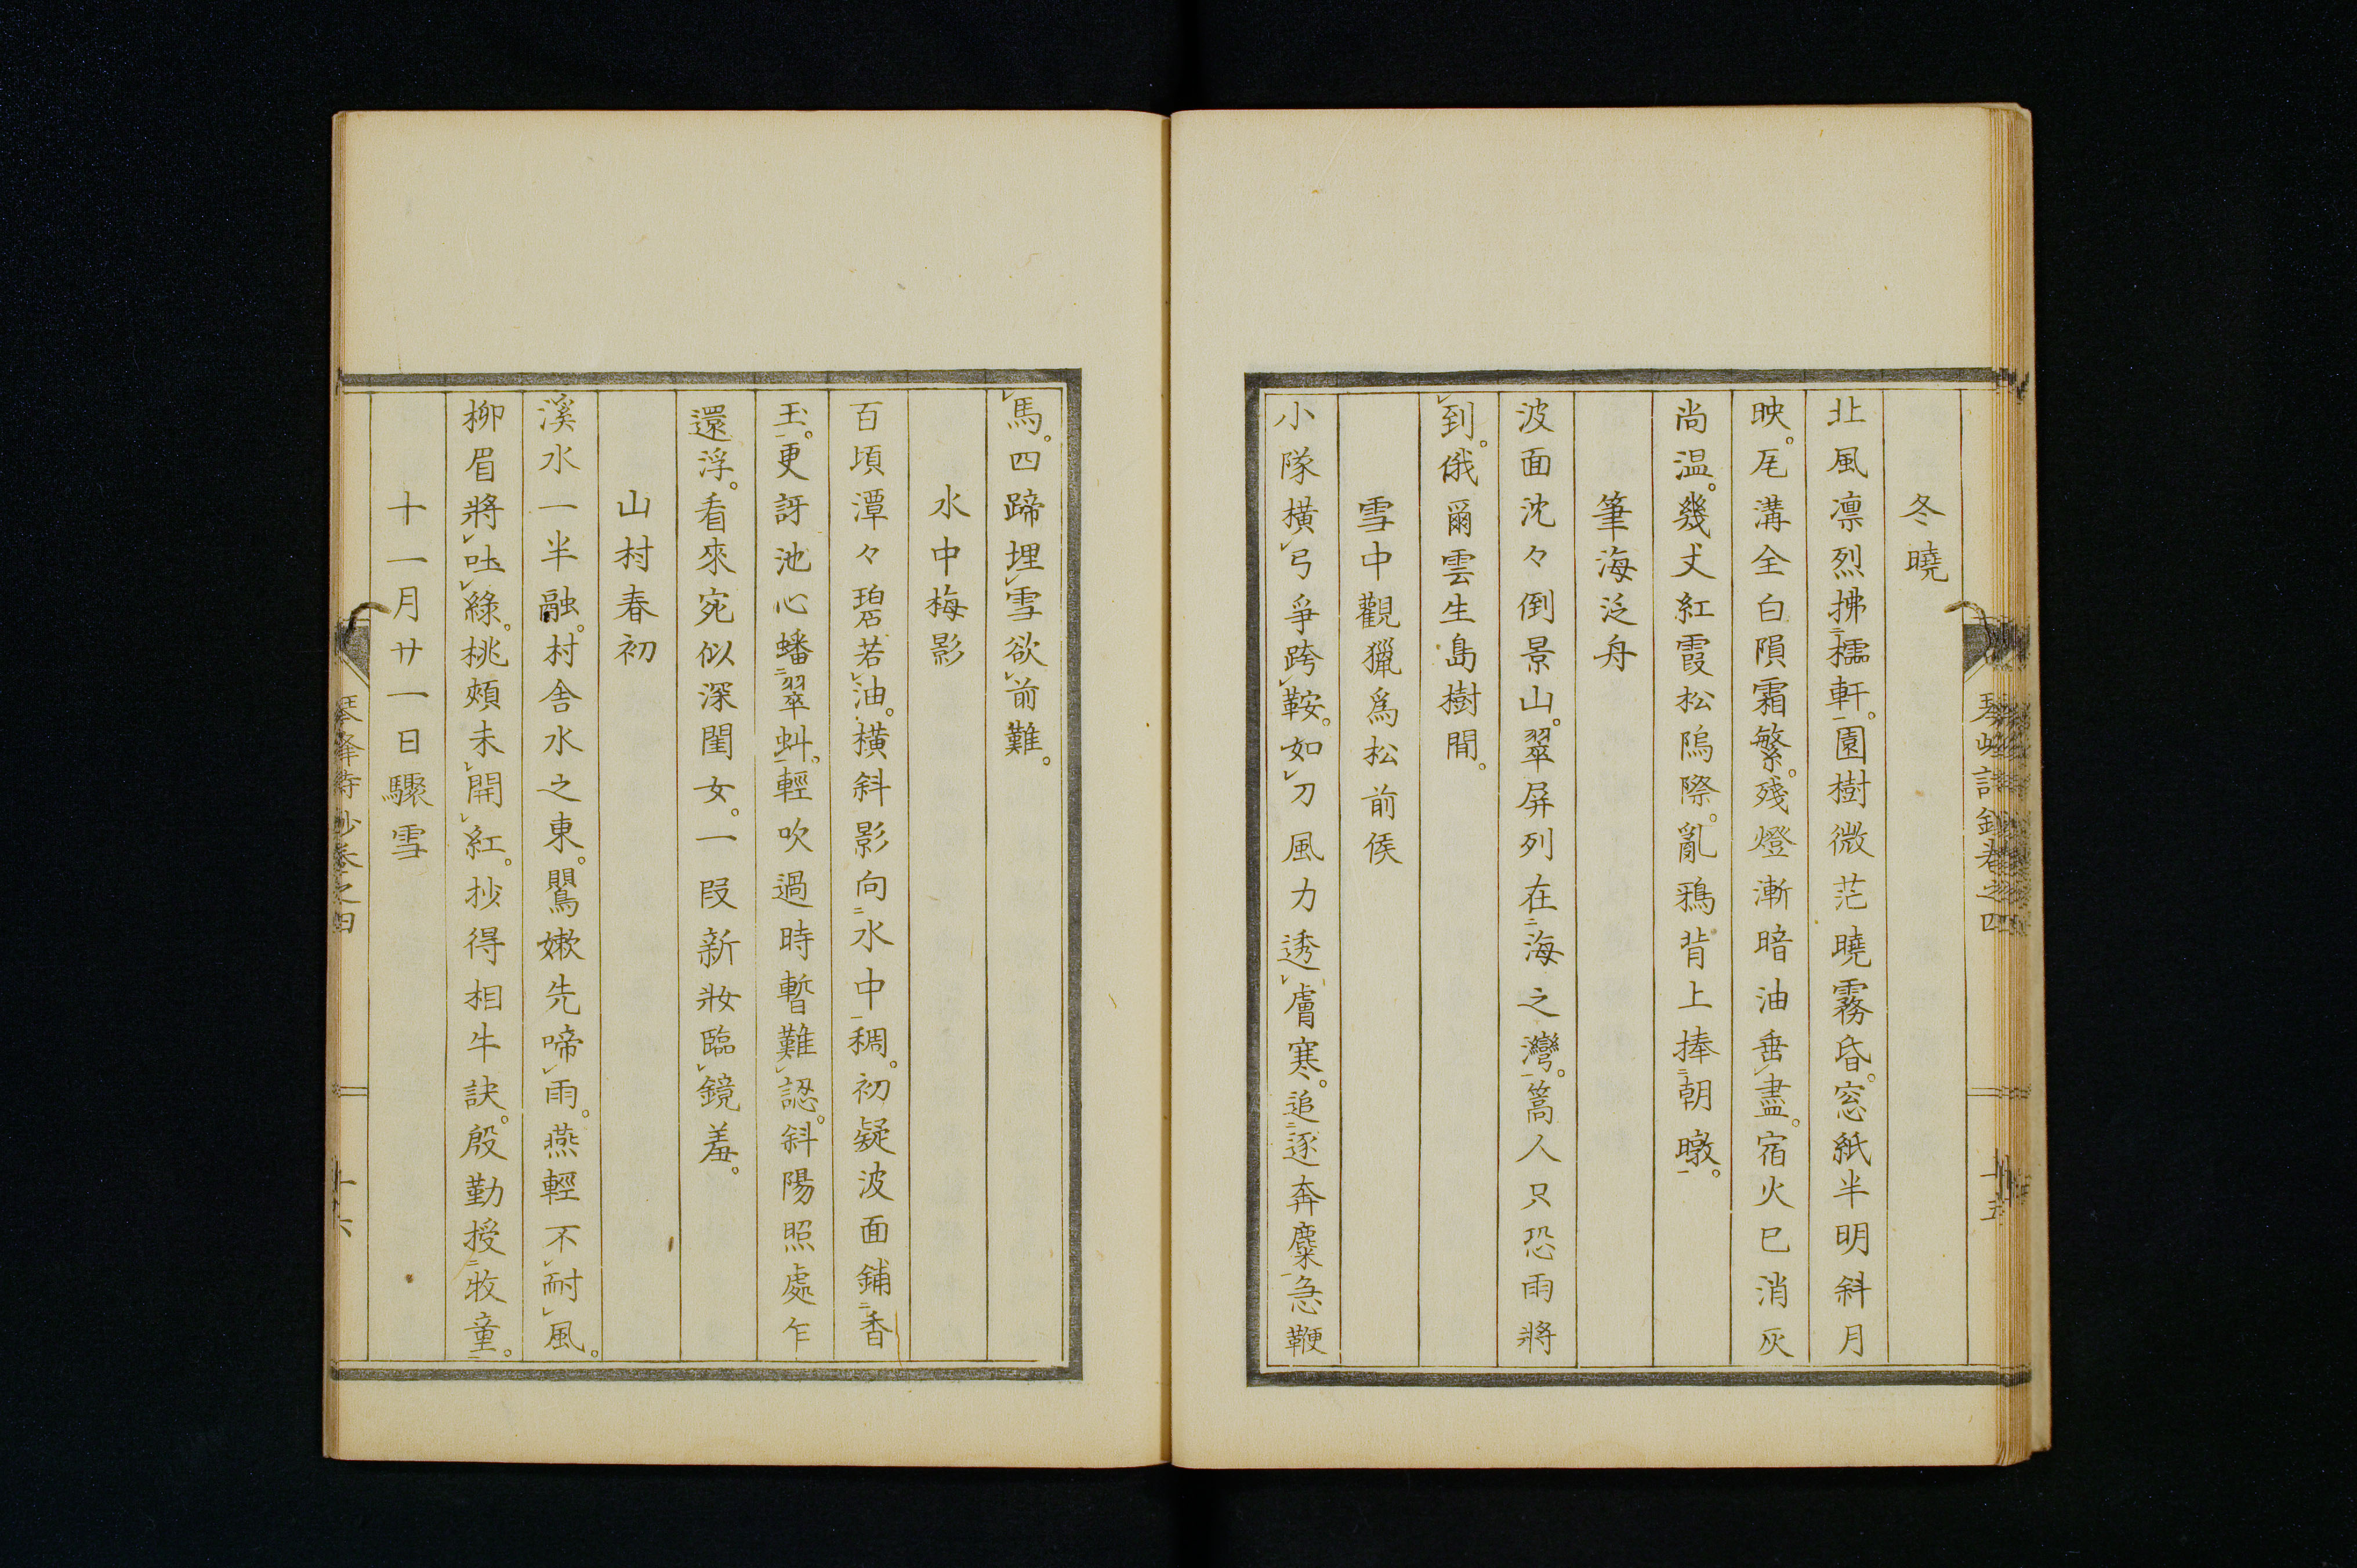 冬曉
北風凛烈拂檽軒。園樹微茫曉霧昏。窓紙半明斜月
映。尾溝全白隕霜繁。殘燈漸暗油垂盡。宿火已消灰
尚温。幾丈紅霞松隖際。亂鴉背上捧朝暾。
筆海泛舟
波面沈々倒景山。翠屏列在海之灣。篙人只恐雨將
到。俄爾雲生島樹間。
雪中觀獵爲松前侯
小隊横弓爭跨鞍。如刀風力透膚寒。追逐奔麋急鞭
馬。四蹄埋雪欲前難。
水中梅影
百頃潭々碧若油。横斜影向水中稠。初疑波面鋪香
玉。更訝池心蟠翠虯。輕吹過時暫難認。斜陽照處乍
還浮。看來宛似深閨女。一段新妝臨鏡羞。
山村春初
溪水一半融。村舎水之東。鸎嫩先啼雨。燕輕不耐風。
柳眉將吐綠。桃頰未開紅。抄得相牛訣。殷勤授牧童。
十一月廿一日驟雪
琴峰詩抄卷之四
十六